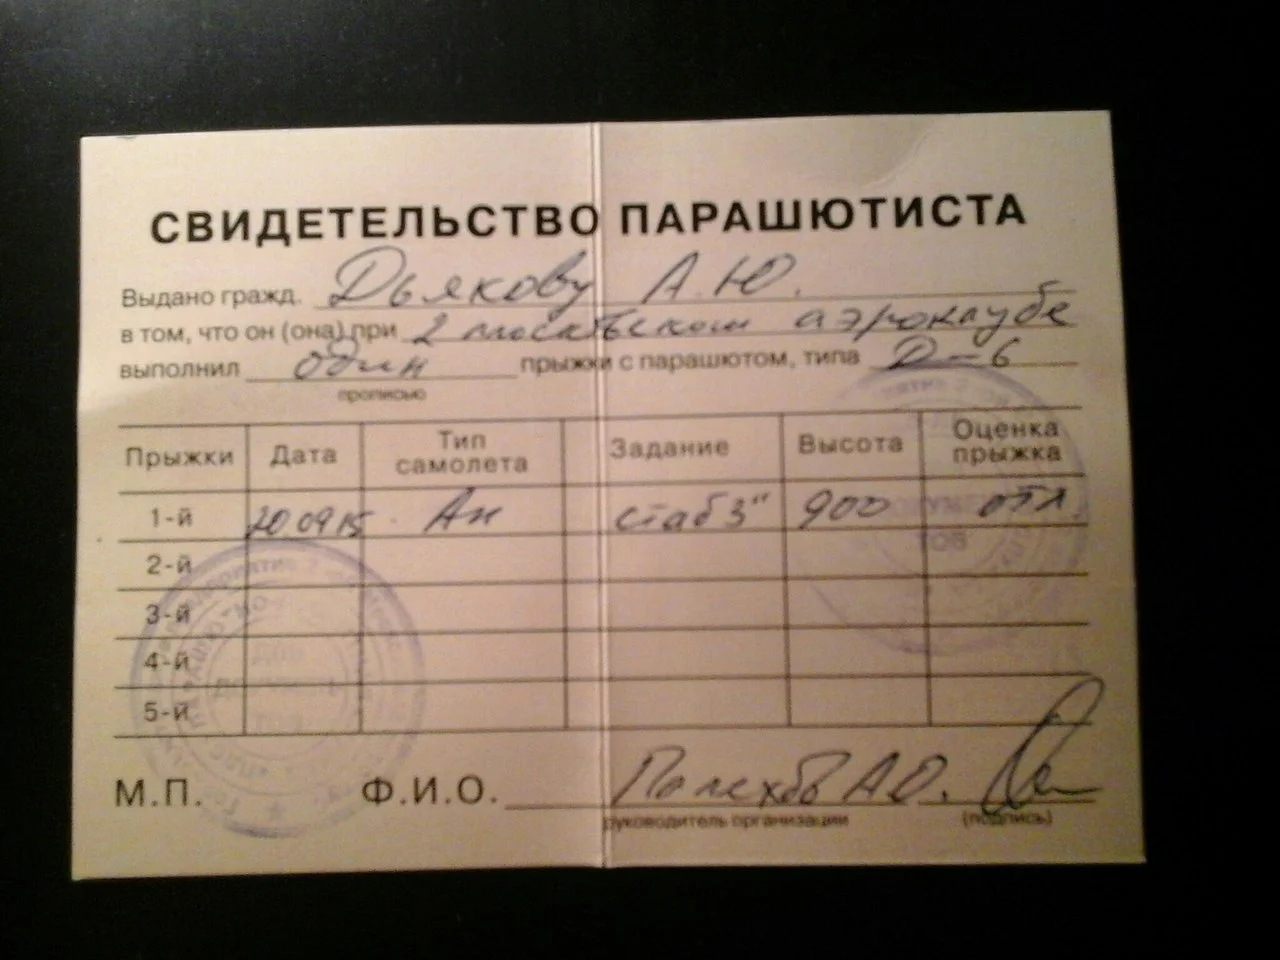 СВИДЕТЕЛЬСТВО ПАРАШЮТИСТА
Выдано гражд. Дьякову А.Ю.
в том, что он (она) при 2 московском аэроклубе
выполнил один прыжки с парашютом, типа Д-6
прописью
Прыжки Дата Тип самолета Задание Высота Оценка прыжка
1-й 20.09.15 Ан стаб 3" 900 отл.
2-й
3-й
4-й
5-й
М.П. Ф.И.О. А.Ю.
руководитель организации (подпись)